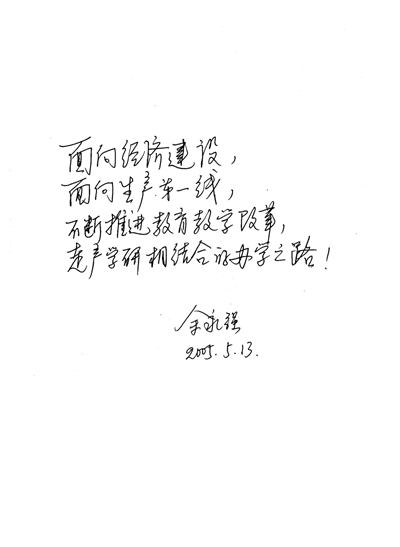 面向经济建设，
面向生产第一线，
不断推进教育教学改革，
走产学研相结合的办学之路！
余永强
2005.5.13.